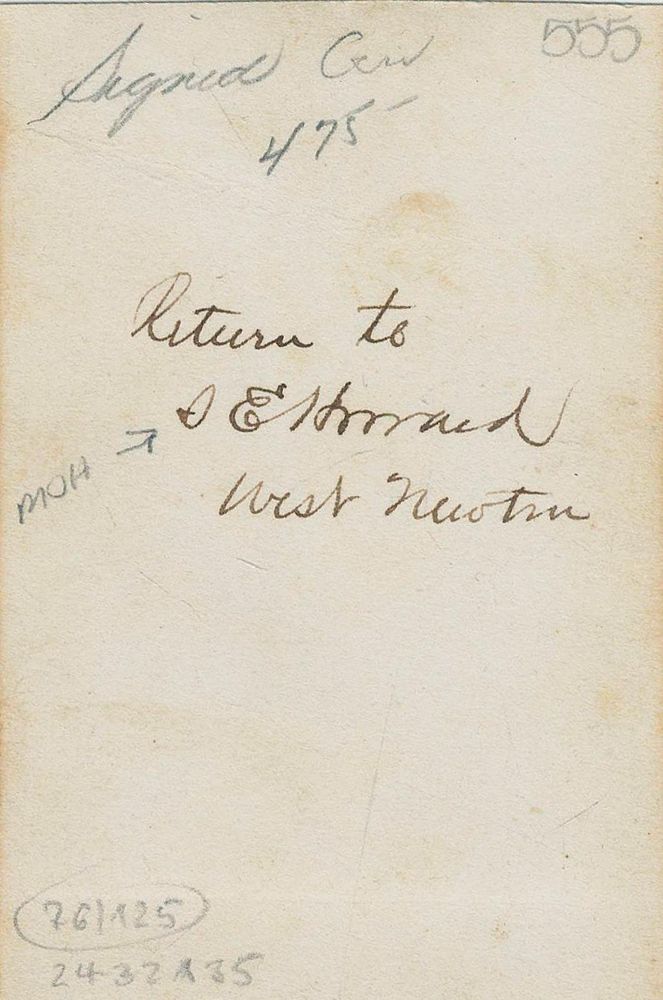 555
Signed
475
Return to
S E Howard
West Newton
MOH
76/125